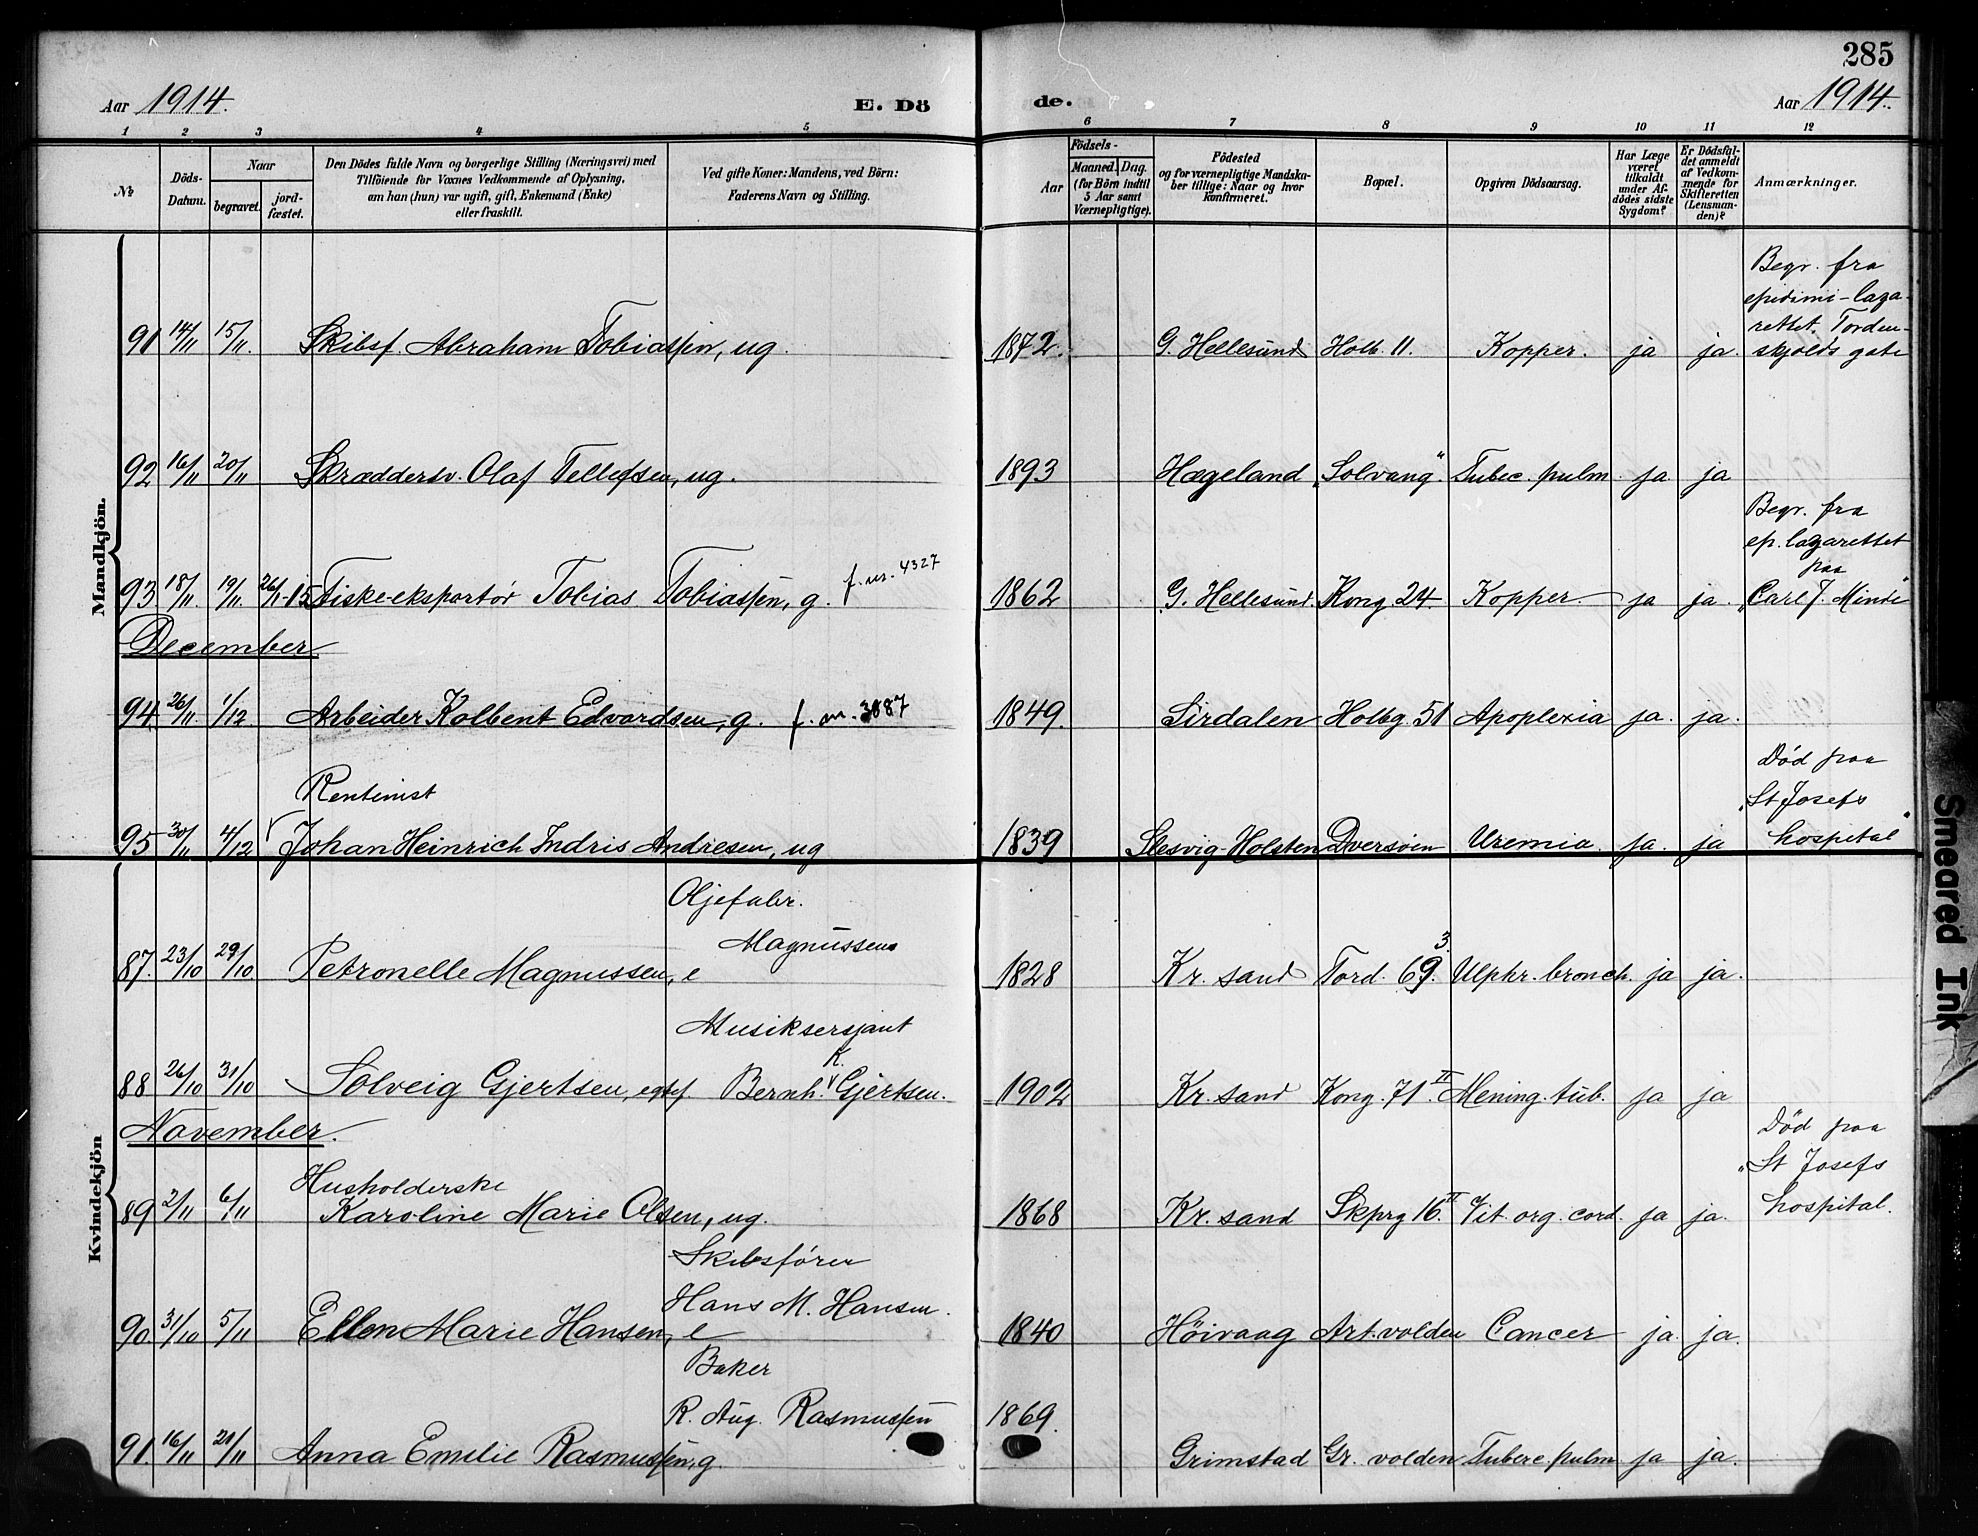 285
Aar 1914. E. Dö de. Aar 1914.
1 2 3 4 5 6 7 8 9 10 11 12
№
Döds-Datum.
Naar
begravet.
jord-fæstet.
Den Dödes fulde Navn og borgerlige Stilling (Næringsvei) med
Tilföiende for Voxnes Vedkommende af Oplysning,
om han (hun) var ugift, gift, Enkemand (Enke)
eller fraskilt.
Ved gifte Koner: Mandens, ved Börn:
Faderens Navn og Stilling.
Födsels-
Aar
Maaned. Dag.
(for Börn indtil
5 Aar samt
Værnepligtige).
Födested
og for værnepligtige Mandska-
ber tillige: Naar og hvor
konfirmeret.
Bopæl.
Opgiven Dödsaarsag.
Har Læge
været
tilkaldt
under Af-
dödes sidste
Sygdom?
Er Dödsfal-
det anmeldt
af Vedkom-
mende for
Skifteretten
(Lensman-
den)?
Anmærkninger.
Mandkjön.
Begr. fra
epidimi-laza-
rettet. Torden-
91 14/11 15/11. Skibsf. Abraham Tobiassen, ug. 1872. G. Hellesund Holb. 11. Kopper. ja ja. skjolds gate
92 16/11 20/11 Skræddersv. Olaf Tellefsen, ug. 1893 Hægeland „Solvang“. Tubec. pulm. ja ja
Begr. fra
ep. lazarettet
paa
93 18/11. 19/11. 26/1-15 Fiske-eksportør Tobias Tobiassen, g. f. nr. 4327 1862 G. Hellesund. Kong 24 Kopper. ja ja. „Carl J. Minde“
December
94. 26/11. 1/12 Arbeider Kolbent Edvardsen, g. f. nr. 3887 1849. Sirdalen Holbg. 51 Apoplexia ja. ja.
Rentenist
Død paa
„St Josefs
95 30/11 4/12 Johan Heinrich Indris Andresen, ug 1839 Slesvig-Holsten Dversøen Uremia. ja. ja hospital“
Kvindekjön
Oljefabr.
Magnussens
87. 23/10 29/10 Petronelle Magnussen, e 1828 Kr. sand Tord. 69.3. Ulphr. bronch. ja ja.
Musiksersjant
K.
88 26/10 31/10 Solveig Gjertsen, egtef. Bernh. Gjertsen. 1902 Kr. sand Kong. 71 II Mening. tub. ja ja
November.
Død paa
„St Josefs
Husholderske
hospital.
89 2/11 6/11 Karoline Marie Olsen, ug. 1868 Kr. sand Skprg 16. II Vit. org. cord. ja ja.
Skibsfører
Hans M. Hansen.
90 31/10 5/11 Ellen Marie Hansen, e 1840 Høivaag Art. volden Cancer ja. ja.
Baker
R. Aug. Rasmussen 1869.
91. 16/11 21/11 Anna Emilie Rasmussen, g. Grimstad Gr. volden Tuberc. pulm ja ja.
Smeared Ink